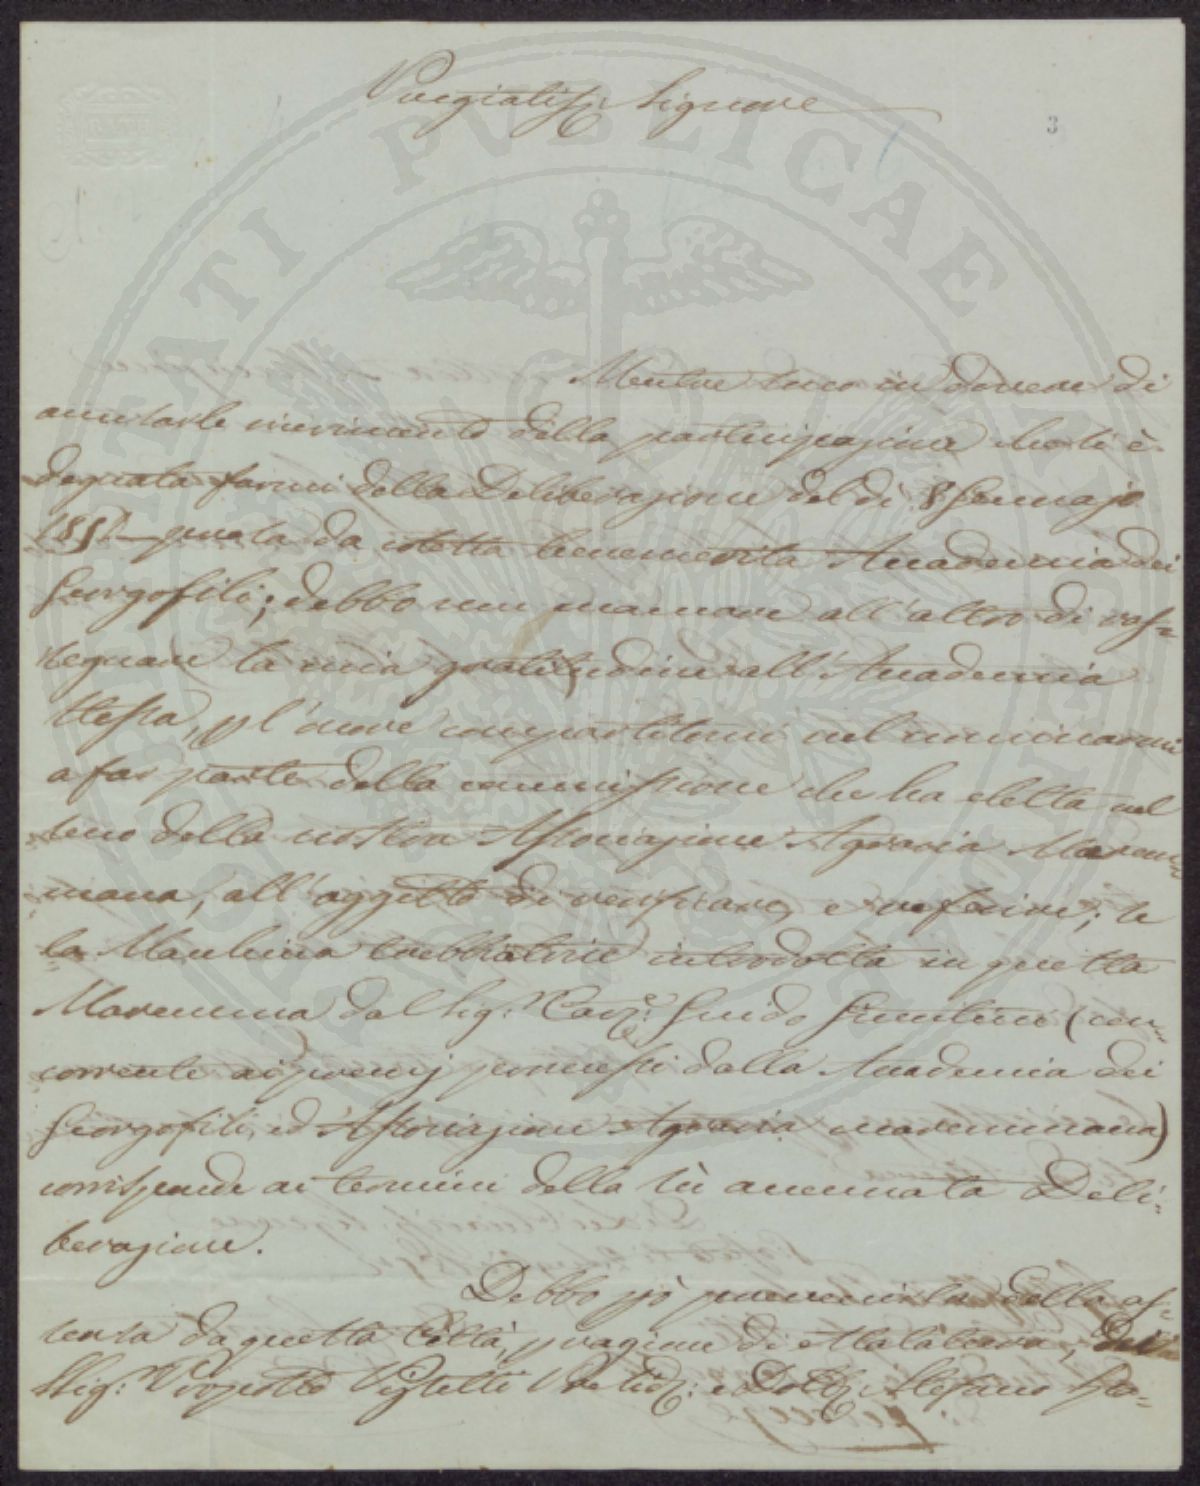 Pregiatiss: Signore
3
PVBLICAE
Mentre sono in dovere di
accusarle ricevimento della partecipazione che si è
degnata farmi della Deliberazione del di 8 Gennajo
185 presa da cotesta benemerita Accademia dei
Georgofili; debbo non mancare all'altro di ras=
segnare la mia gratitudine all'Accademia
stessa, p l'onore compartitomi nel nominarmi
a far parte della commissione che ha eletta nel
seno della nostra Associazione Agraria Marem=
mana, all'oggetto di verificare, e referire; se
la Macchina trebbiatrice introdotta in questa
Maremma dal Sig: Cav: Guido (con=
corrente ai premj promessi dalla Accademia dei
Georgofili, ed Associazione Agraria maremmana)
corrisponde ai termini della sù accennata Deli=
berazione.
Debbo pò prevenirla della as=
senza da questa Città, p ragione di estatatura, dei
Sig: Proposto Pistelli e Dott: Stefano